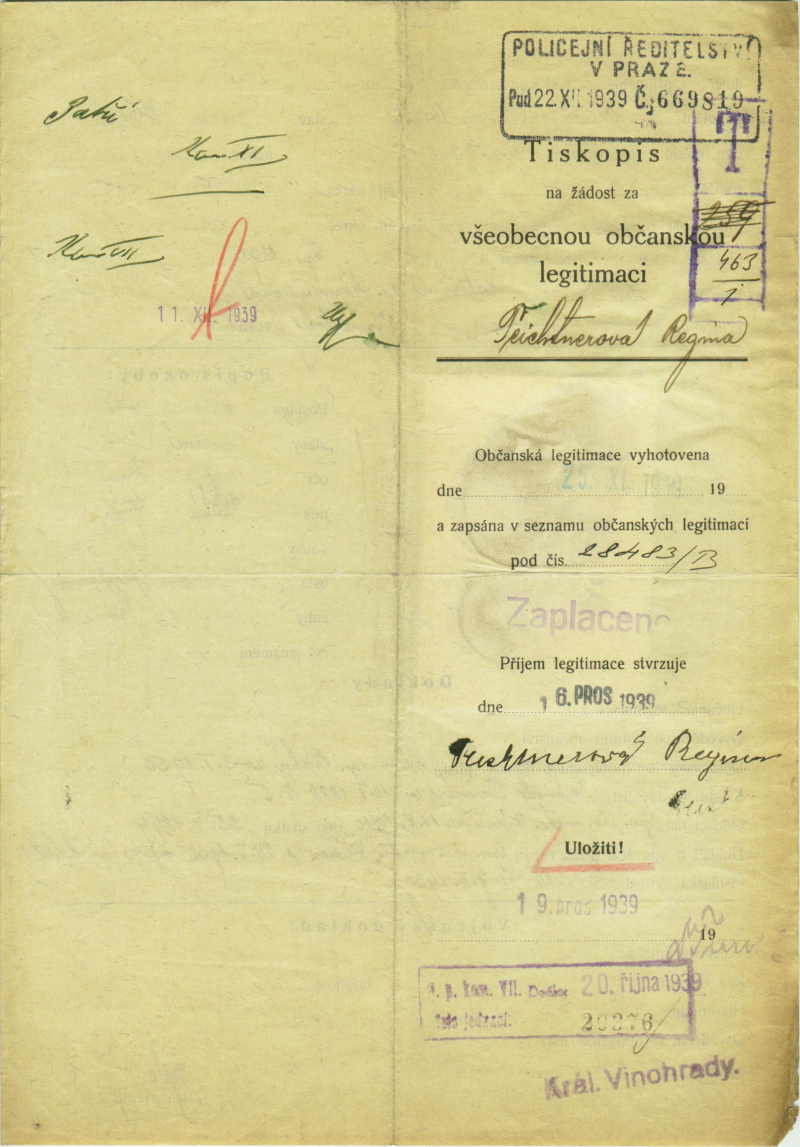 Patří
Kom XI
Kom VII
11. XI. 1939
POLICEJNÍ ŘEDITELSTVÍ
V PRAZE.
Pod 22. XII. 1939 Č.j 669819
T
Tiskopis
na žádost za
všeobecnou občanskou
legitimaci
259
463
1
Teichtnerová Regina
Občanská legitimace vyhotovena
dne 19
a zapsána v seznamu občanských legitimací
pod čís. 28483/B
Zaplaceno
Příjem legitimace stvrzuje
dne 16. PROS 1939
Teichtnerová Regina
Uložiti!
19. pros 1939
19
kom. VII. Došlo: 20. října 1939
Číslo jednací: 20276
Král. Vinohrady.